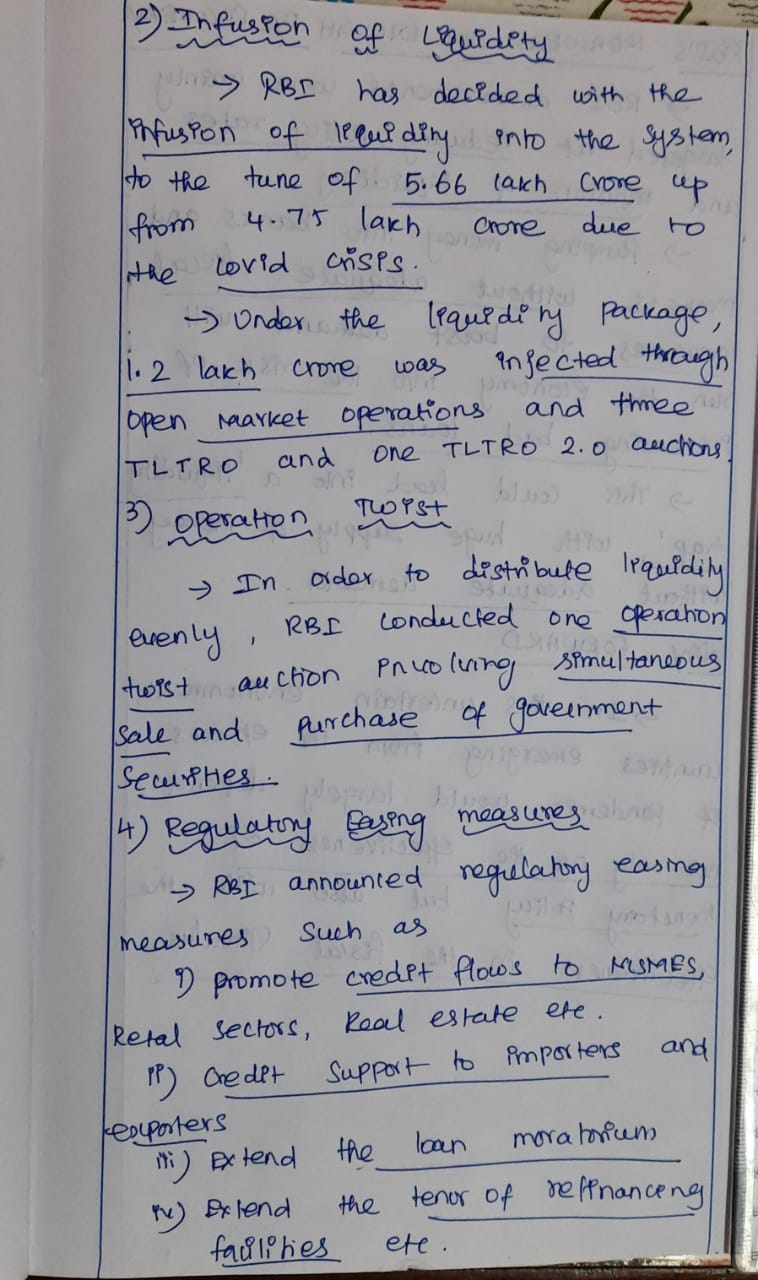 2) Infusion of Liquidity
→ RBI has decided with the
infusion of liquidity into the system,
to the tune of 5.66 lakh crore up
from 4.75 lakh crore due to
the covid crisis.
→ Under the liquidity package,
1.2 lakh crore was injected through
open market operations and three
TLTRO and one TLTRO 2.0 auctions.
3) Operation Twist
→ In order to distribute liquidity
evenly, RBI conducted one operation
twist auction involving simultaneous
sale and purchase of government
securities.
4) Regulatory Easing measures
→ RBI announced regulatory easing
measures such as
i) promote credit flows to MSMEs,
Retal sectors, Real estate etc.
ii) Credit Support to importers and
exporters
iii) Extend the loan moratorium
iv) Extend the tenor of refinancing
facilities etc.